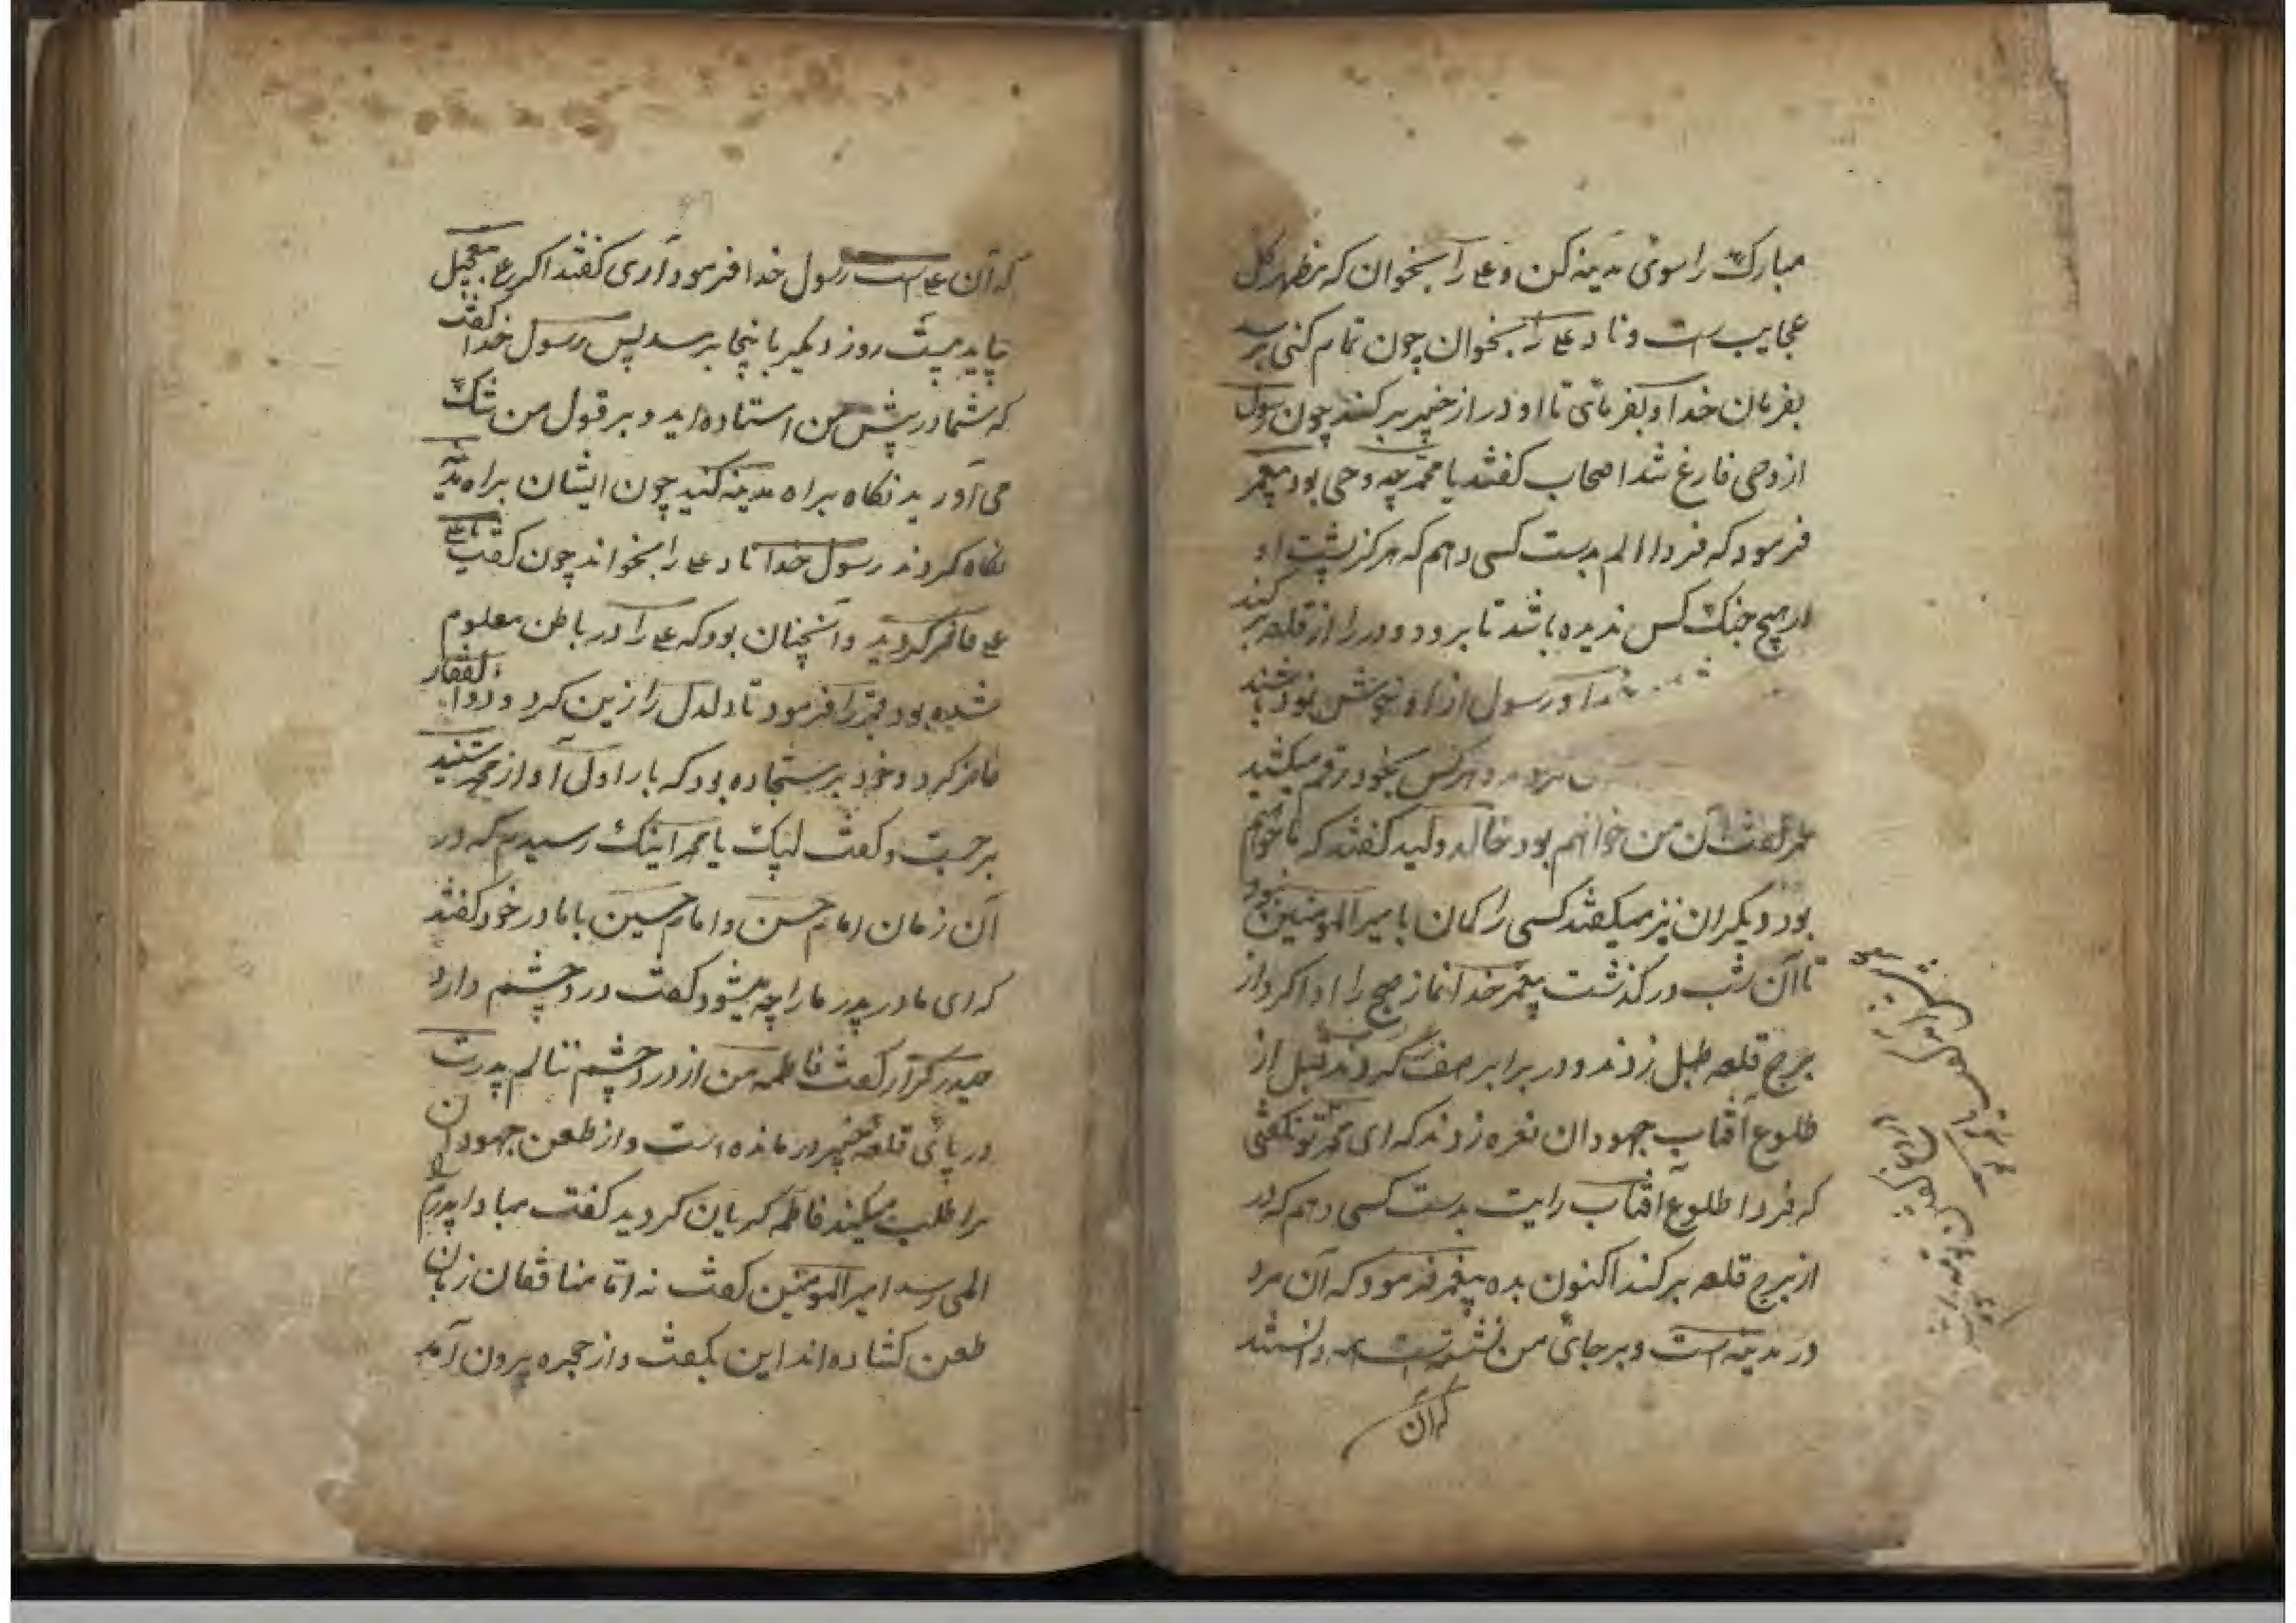 مبارک را سوی مدینه کن و علی را بخوان که مظهر کل
عجایب است و ناد علی را بخوان چون تمام کنی برسد
بفرمان خدا و بفرمائی تا او در از خیبر برکند چون رسول
از وحی فارغ شد اصحاب گفتند یا محمد چه وحی بود پیغمبر
فرمود که فردا الم بدست کسی دهم که هرگز پشت او
در هیچ جنگ کس ندیده باشد تا برود و در را از قلعه برکند
خدا و رسول از او خوشنود باشند
و هرکس بخود رقم میکشید
عمر گفت آن من خواهم بود خالد ولید گفتند که ما خواهیم
بود دیگران نیز میگفتند کسی را گمان با میرالمومنین نبود
تا آن شب در گذشت پیغمبر خدا نماز صبح را ادا کرد از
برج قلعه طبل زدند و در برابر صف کردند قبل از
طلوع آفتاب جهودان نعره زدند که ای محمد تو نگفتی
که فردا طلوع آفتاب رایت بدست کسی دهم که در
از برج قلعه برکند اکنون بده پیغمبر فرمود که آن مرد
در مدینه است و برجای من نشسته است دانستند
که آن
که آن علی است رسول خدا فرمود آری گفتند اگر علی بتعجیل
بیاید بیست روز دیگر باینجا برسد پس رسول خدا گفت
که شما در پیش من استاده اید و بر قول من شک
می آورید نگاه براه مدینه کنید چون ایشان براه مدینه
نگاه کردند رسول خدا ناد علی را بخواند چون گفت یا علی
علی حاضر گردید و آنچنان بود که علی را در باطن معلوم
شده بود قنبر را فرمود تا دلدل را زین کرد و ذوالفقار
حاضر کرد و خود بر سجاده بود که بار اول آواز محمد شنید
برجست و گفت لبیک یا محمد اینک رسیدم که در
آن زمان امام حسن و امام حسین با مادر خود گفتند
که ای مادر پدر ما را چه میشود گفت درد چشم دارد
حیدر کرار گفت فاطمه من از درد چشم ننالم پدرت
در پای قلعه خیبر درمانده است و از طعن جهودان
مرا طلب میکند فاطمه گریان گردید گفت مبادا پدرم را
المی رسد امیرالمومنین گفت نه اما منافقان زبان
طعن کشاده اند این بگفت و از حجره بیرون آمد